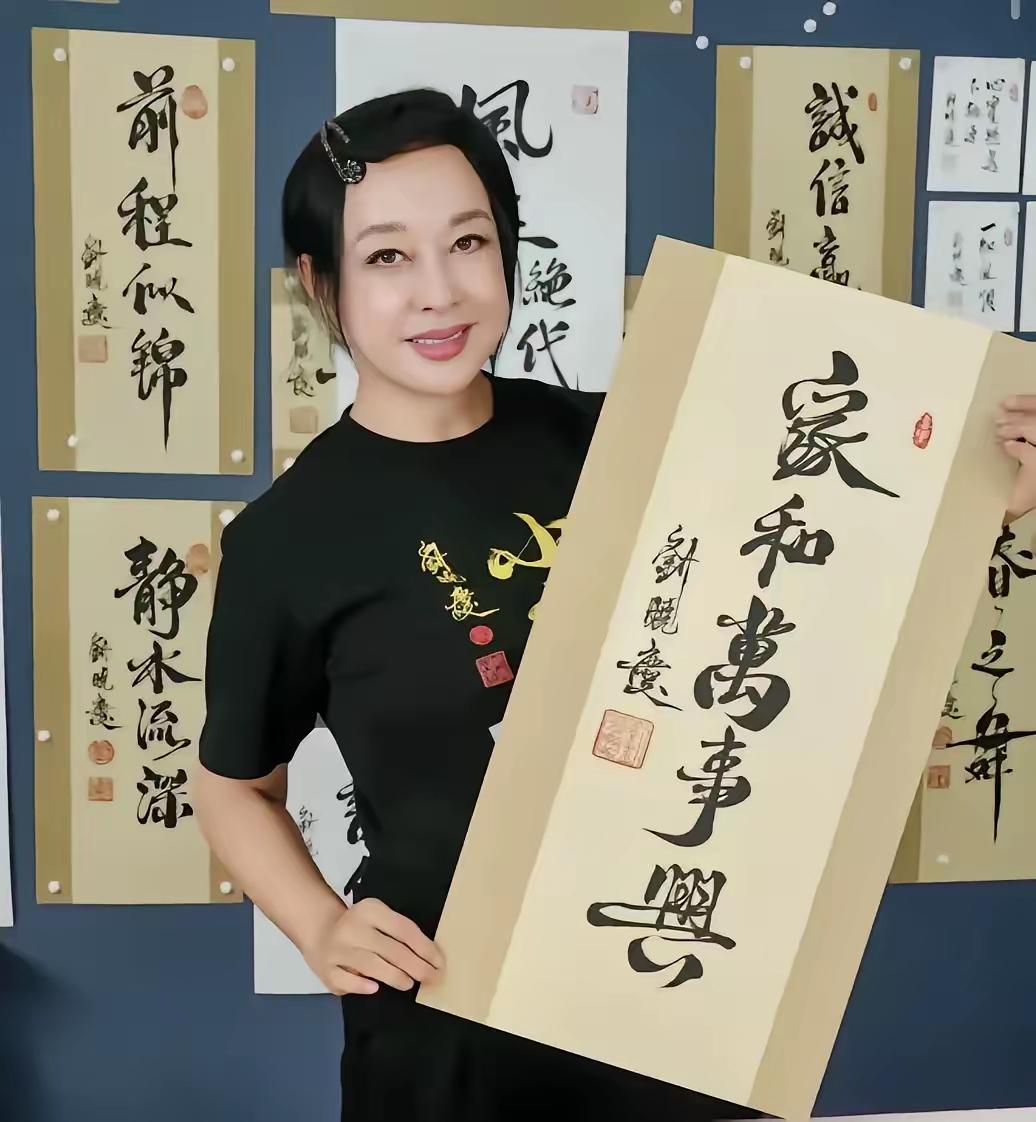 前程似錦
劉曉慶
風
絕代
誠信贏
劉
靜水流深
劉曉慶
家和萬事興
劉曉慶
劉曉慶
春之舞